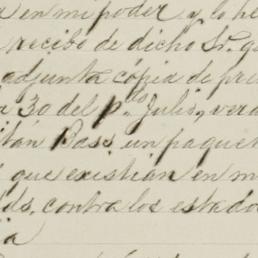 en mi poder y lo he
recibo de dicho Sr. q
adjunta cópia de pr
a 30 del p.do Julio, verá
itán Bass un paquer
que existían en m
ds. contra los estado
ia